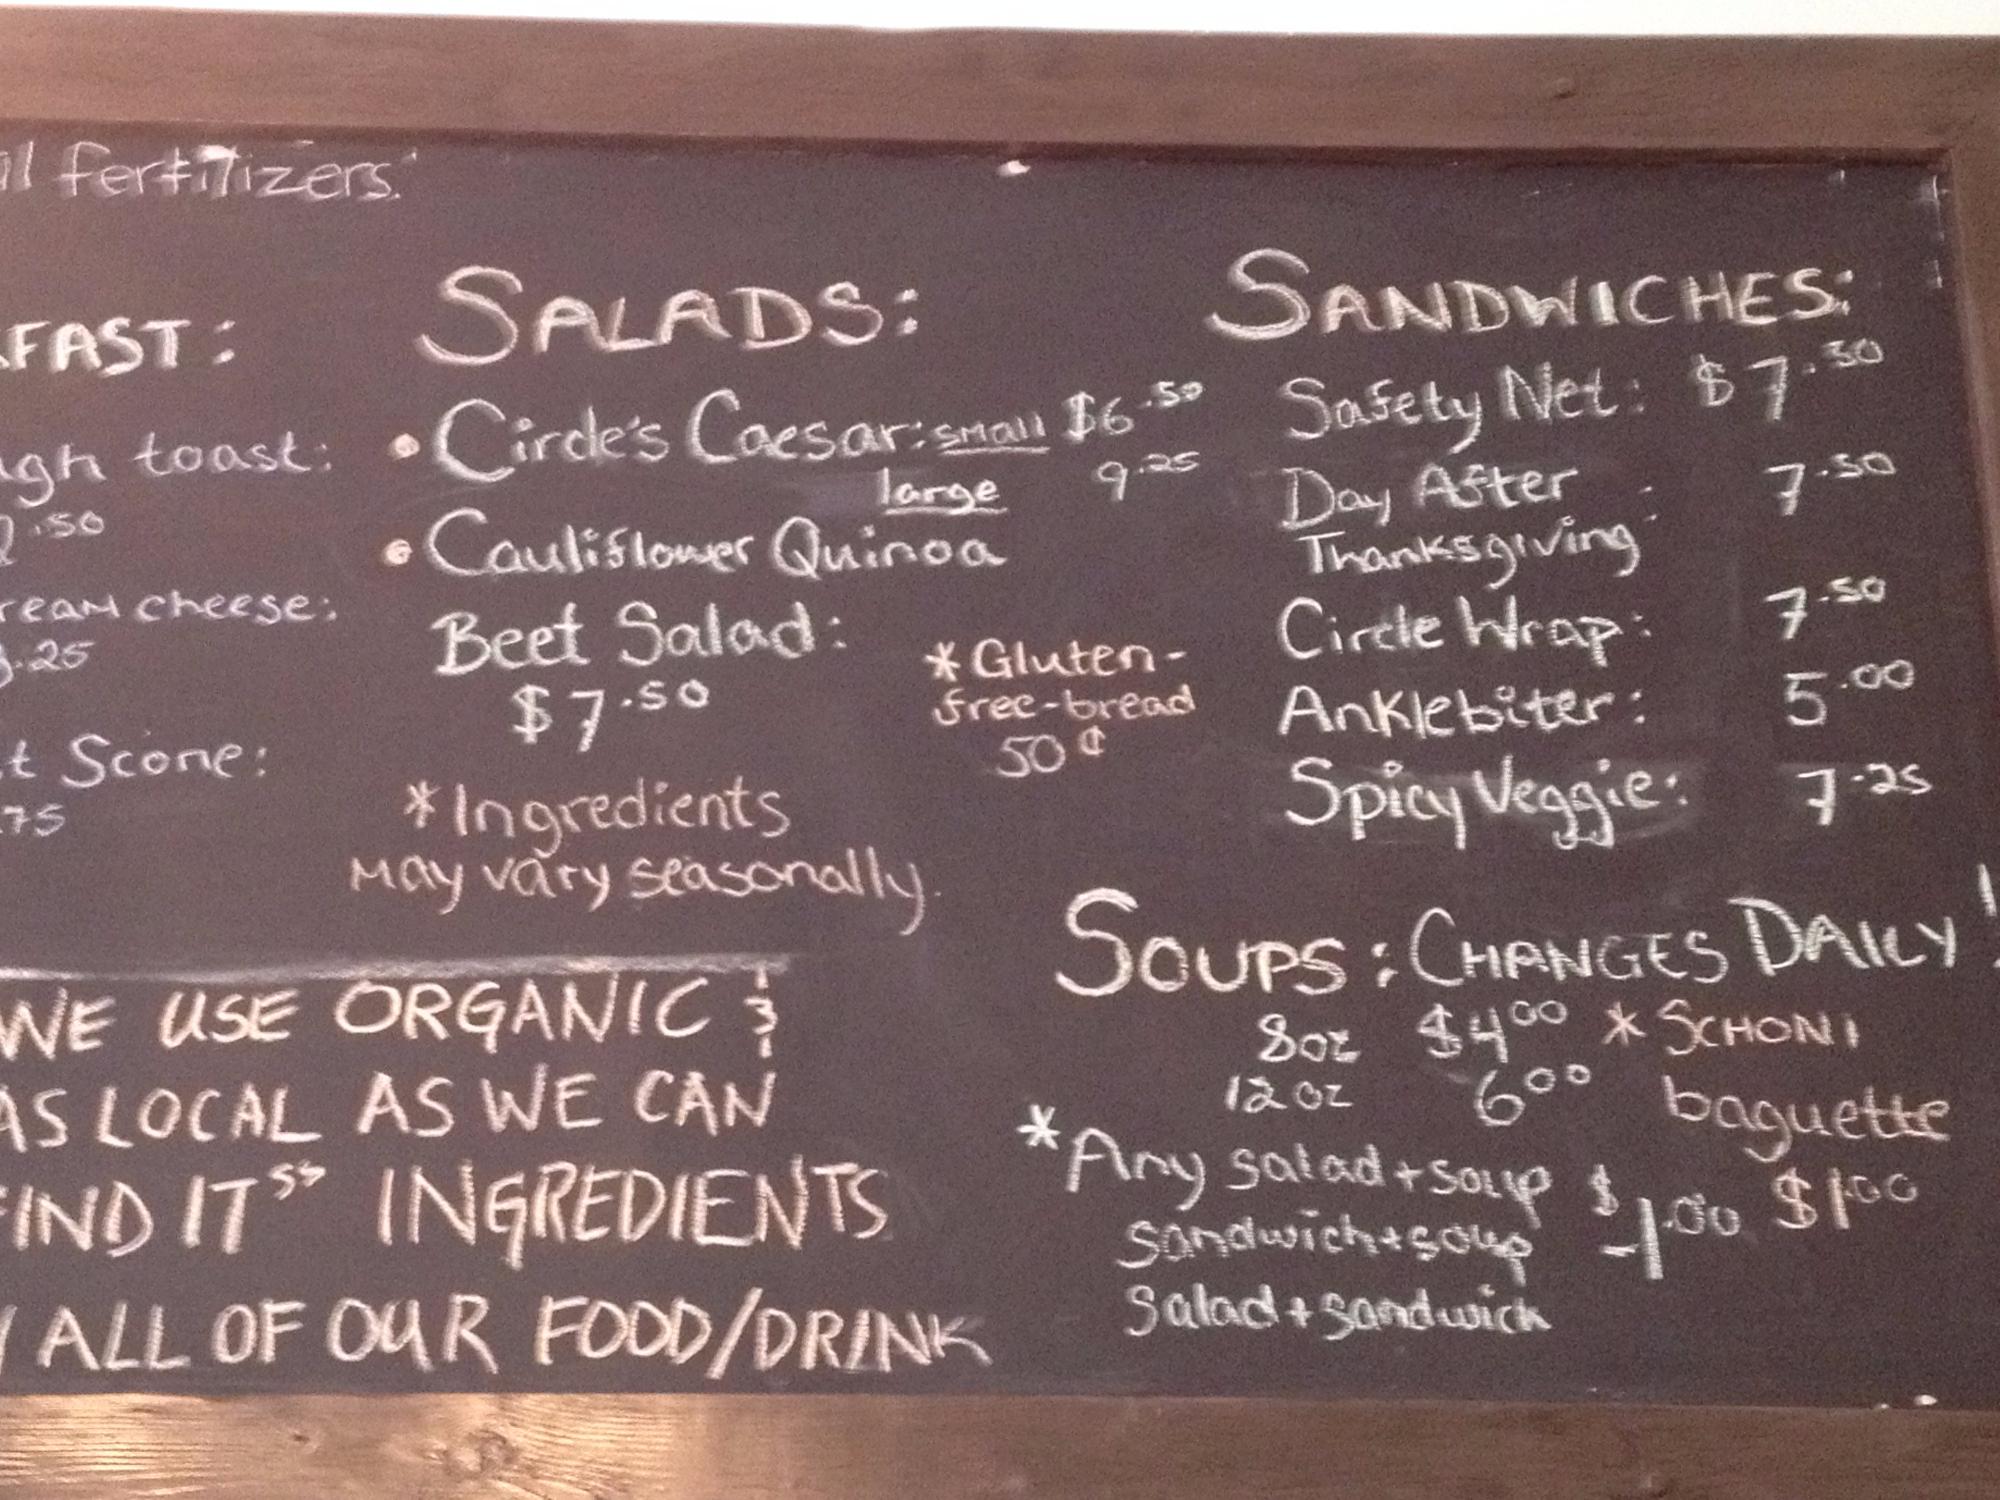 fertilizers.
FAST:
toast:
.50
cream cheese:
.25
Scone:
.75
SALADS:
• Circle's Caesar: small $6.50
large 9.25
• Cauliflower Quinoa
Beet Salad:
$7.50
*Ingredients
may vary seasonally.
*Gluten-
free-bread
50¢
SANDWICHES:
Safety Net: $7.50
Day After 7.50
Thanksgiving:
Circle Wrap: 7.50
Anklebiter: 5.00
Spicy Veggie: 7.25
SOUPS: CHANGES DAILY!
8oz $4.00
12oz 6.00
*SCHONI
baguette
$1.00
*Any salad + soup
sandwich + soup
salad + sandwich
$-1.00
WE USE ORGANIC &
AS LOCAL AS WE CAN
FIND IT" INGREDIENTS
ALL OF OUR FOOD/DRINK